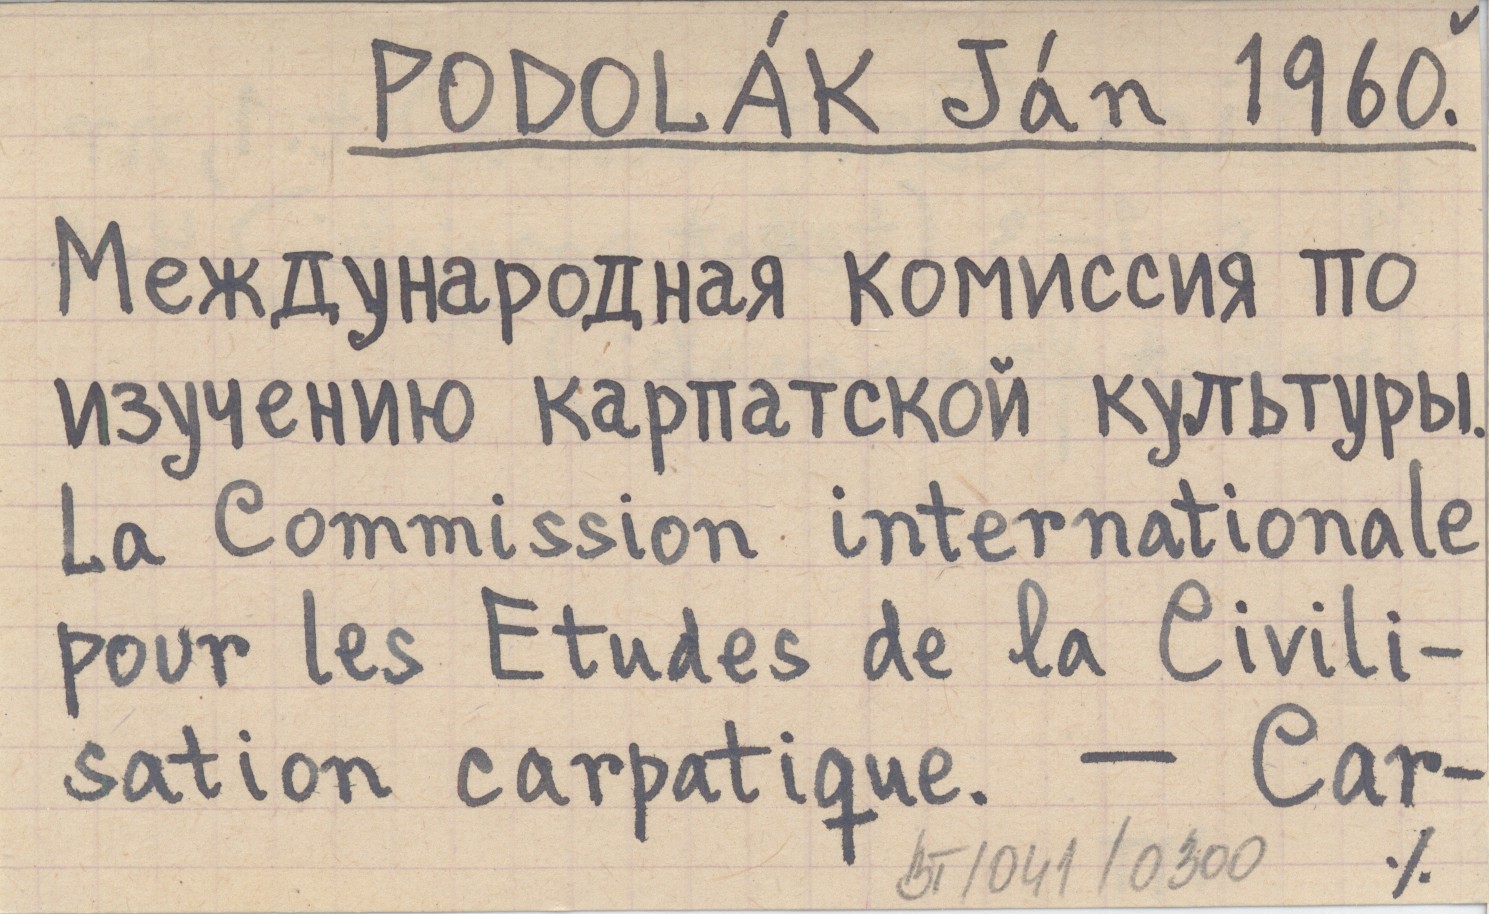 PODOLÁK Ján 1960.
Международная комиссия по
изучению карпатской культуры.
La Commission internationale
pour les Etudes de la Civili-
sation carpatique. — Car-
./.
/041/0300